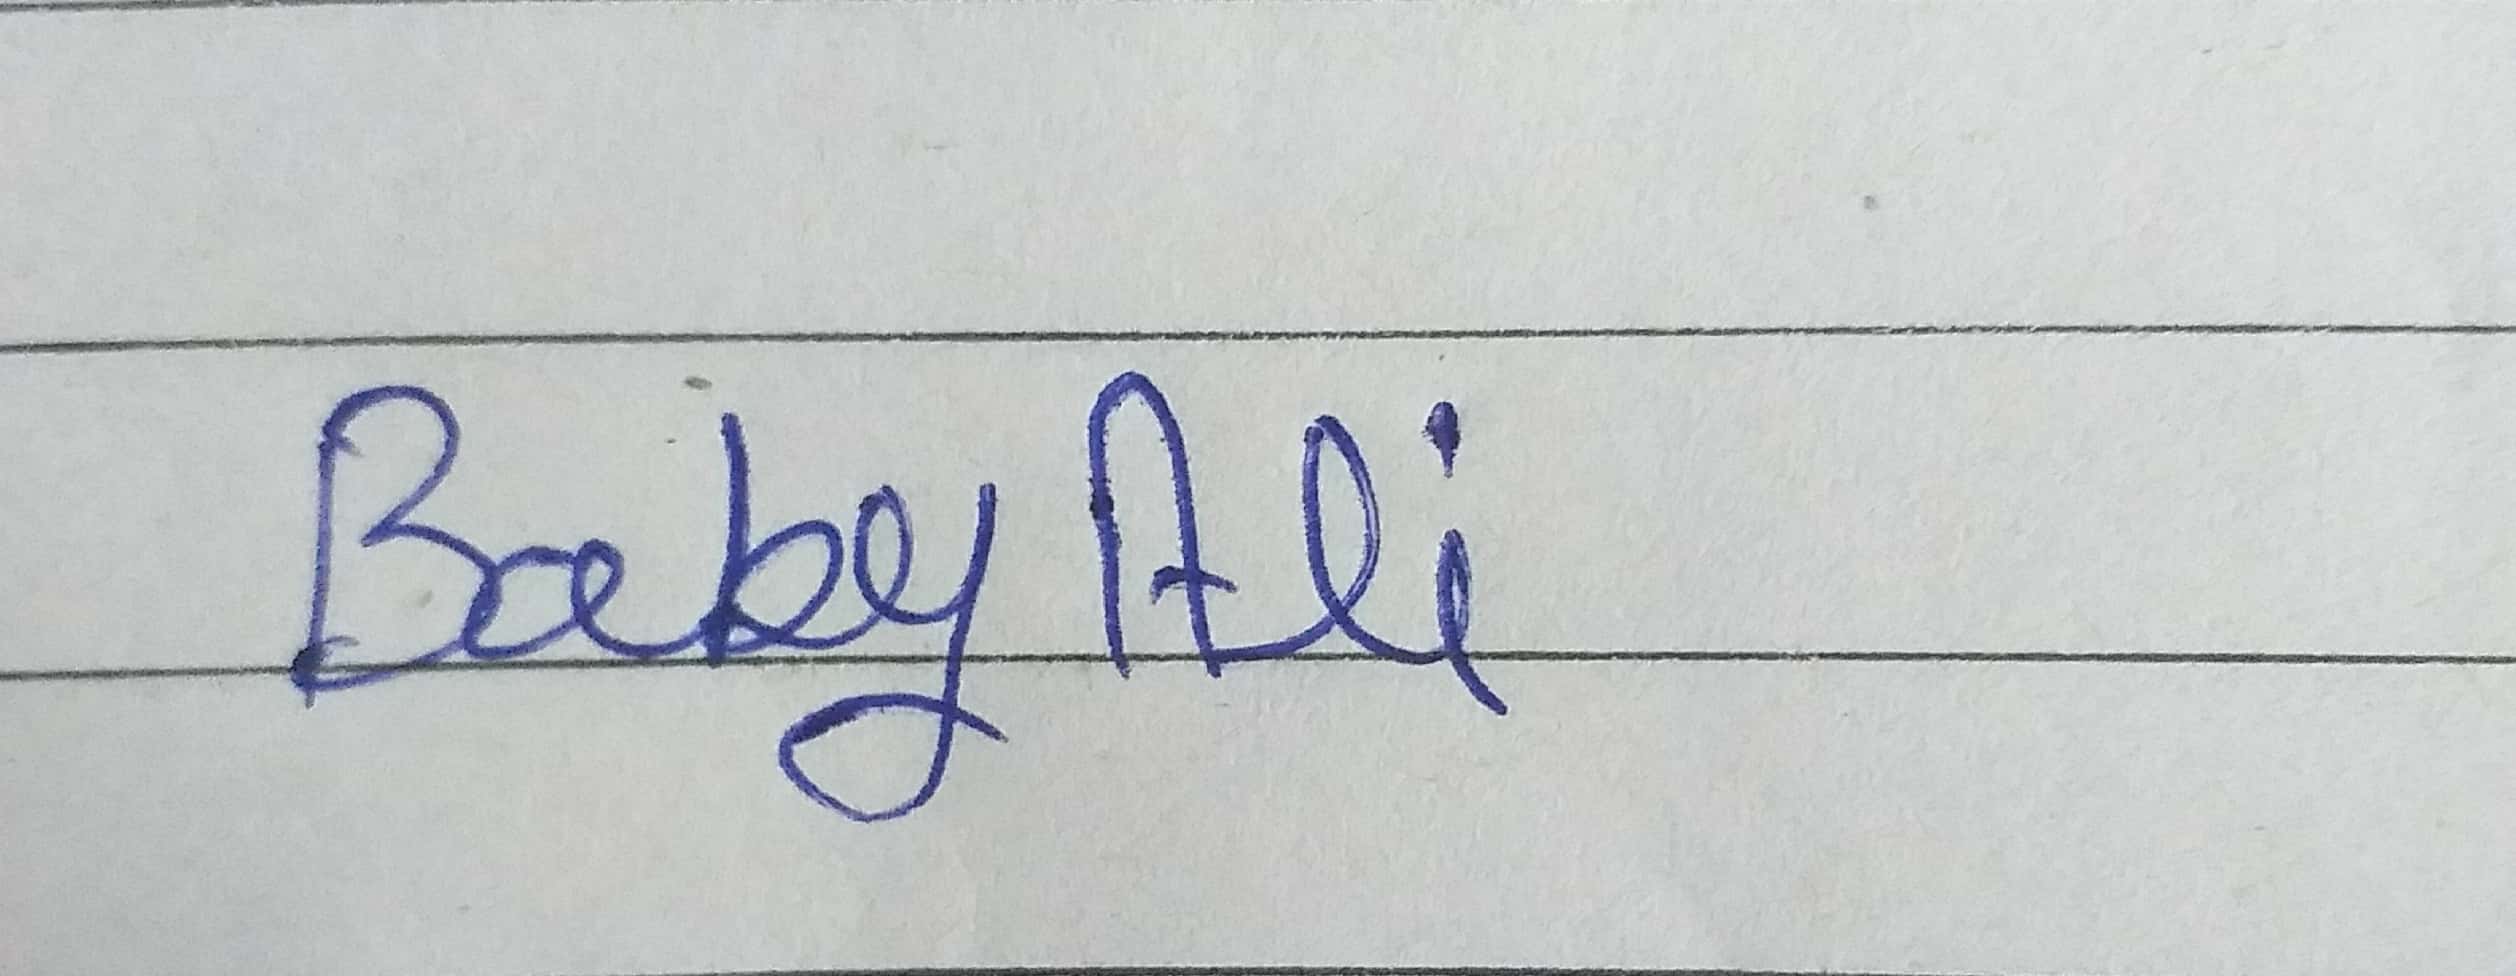 Baby Ali